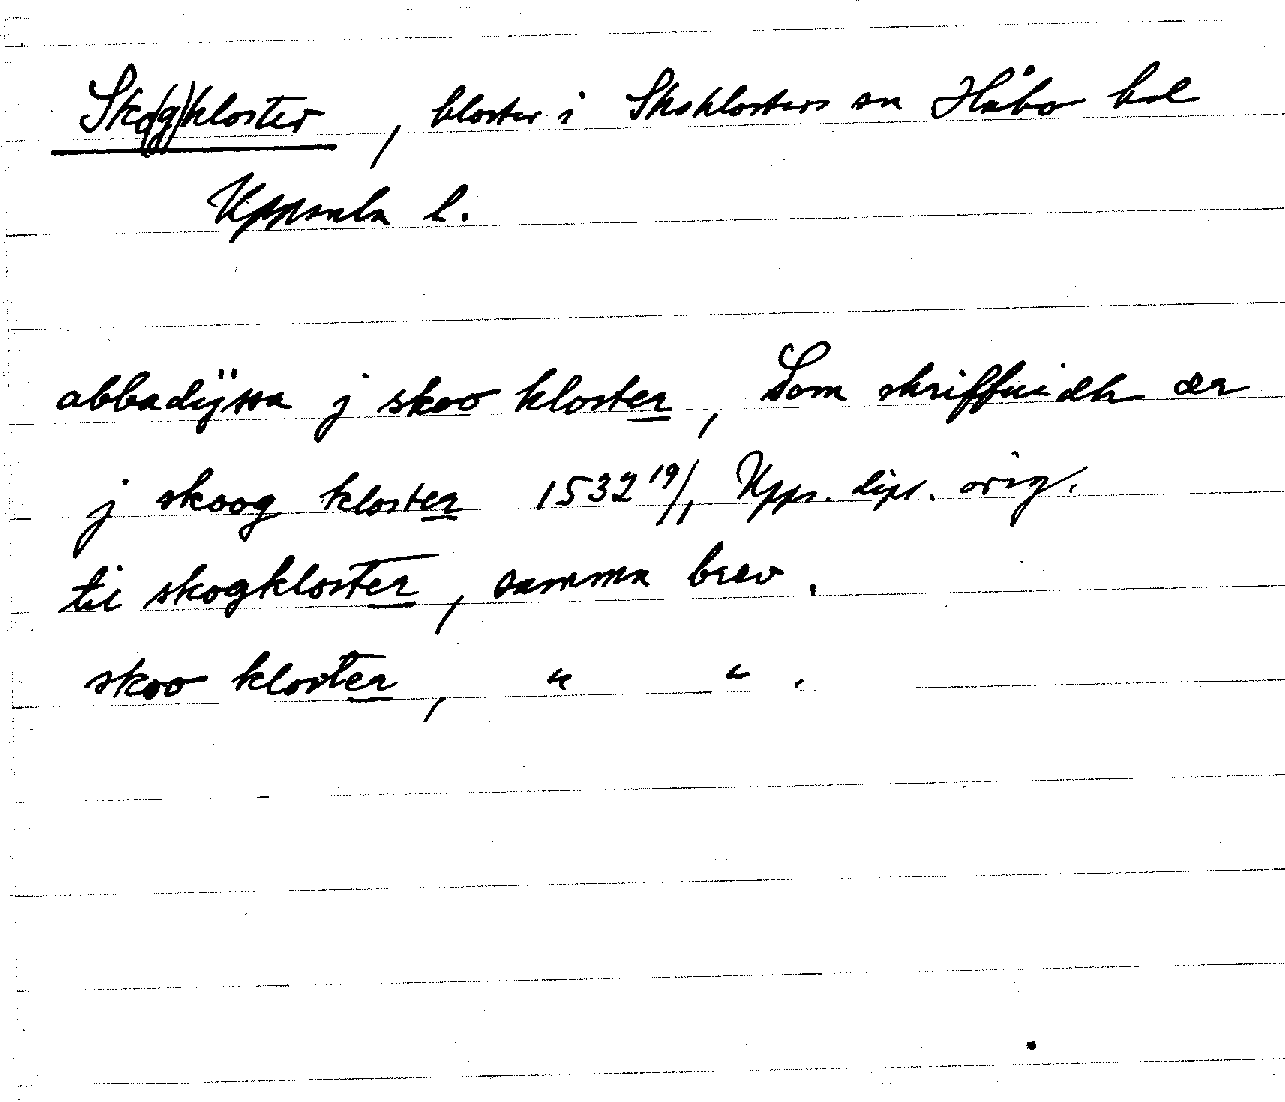 Sko(g)kloster, kloster i Skoklosters sn Håbo hd
Uppsala l.
abbadÿssa j skoo kloster, Som skriffuidh ær
j skoog kloster 1532 19/1 Upps. dipl. orig.
til skogkloster, samma brev.
skoo kloster, " " .